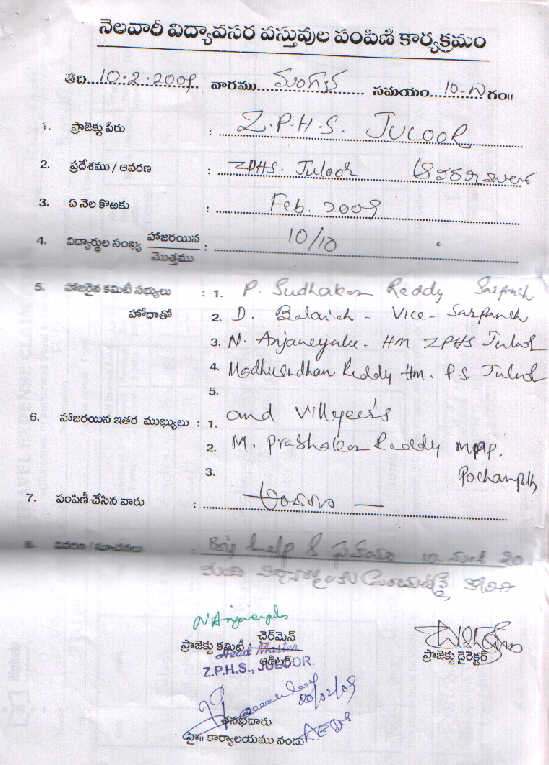 నెలవారీ విద్యావసర వస్తువుల పంపిణి కార్యక్రమం
తేది 10-2-2009 వారము మంగళ సమయం 10-00 గం॥
1. ప్రాజెక్టు పేరు : Z.P.H.S. JULOOR
2. ప్రదేశము / ఆవరణ : ZPHS. Juloor
3. ఏ నెల కొఱకు : Feb. 2009
4. విద్యార్థుల సంఖ్య హాజరయిన : 10/10
మొత్తము
5. హాజరైన కమిటీ సభ్యులు : 1. P. Sudhakar Reddy Sarpanch
హోదాతో 2. D. Balaiah - Vice - Sarpanch
3. N. Anjaneyulu. HM ZPHS Juloor
4. Madhusudhan Reddy HM. P.S Juloor
5.
6. హాజరయిన ఇతర ముఖ్యులు : 1. and Villegers
2. M. Prabhakar Reddy MPP.
3. Pochampally
7. పంపిణీ చేసిన వారు :
8. వివరణ / సూచనలు :
N Anjaneyulu
ప్రాజెక్టు కమిటీ చైర్మెన్
Head Master
ఆడిటర్
Z.P.H.S., JULOOR
ప్రాజెక్టు డైరెక్టర్
20/02/09
ధనభదారు
ప్రైజ కార్యాలయము నందు